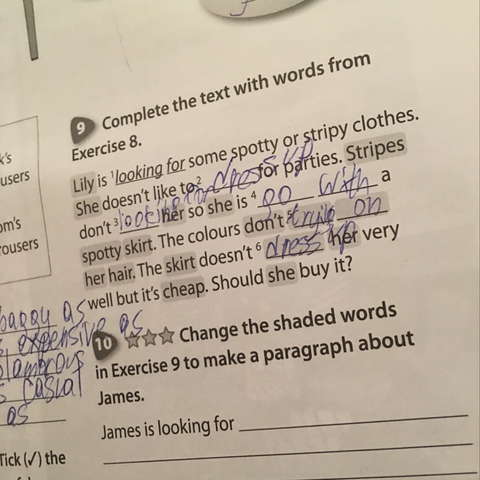 9 Complete the text with words from
Exercise 8.
Lily is ¹looking for some spotty or stripy clothes.
She doesn't like to ² dress up for parties. Stripes
don't ³ her so she is ⁴ go with a
spotty skirt. The colours don't ⁵ on
her hair. The skirt doesn't ⁶ dress up her very
well but it's cheap. Should she buy it?
10 ☆☆☆ Change the shaded words
in Exercise 9 to make a paragraph about
James.
James is looking for
k's
users
om's
rousers
baggy as
expensive as
casual
as
Tick (✓) the